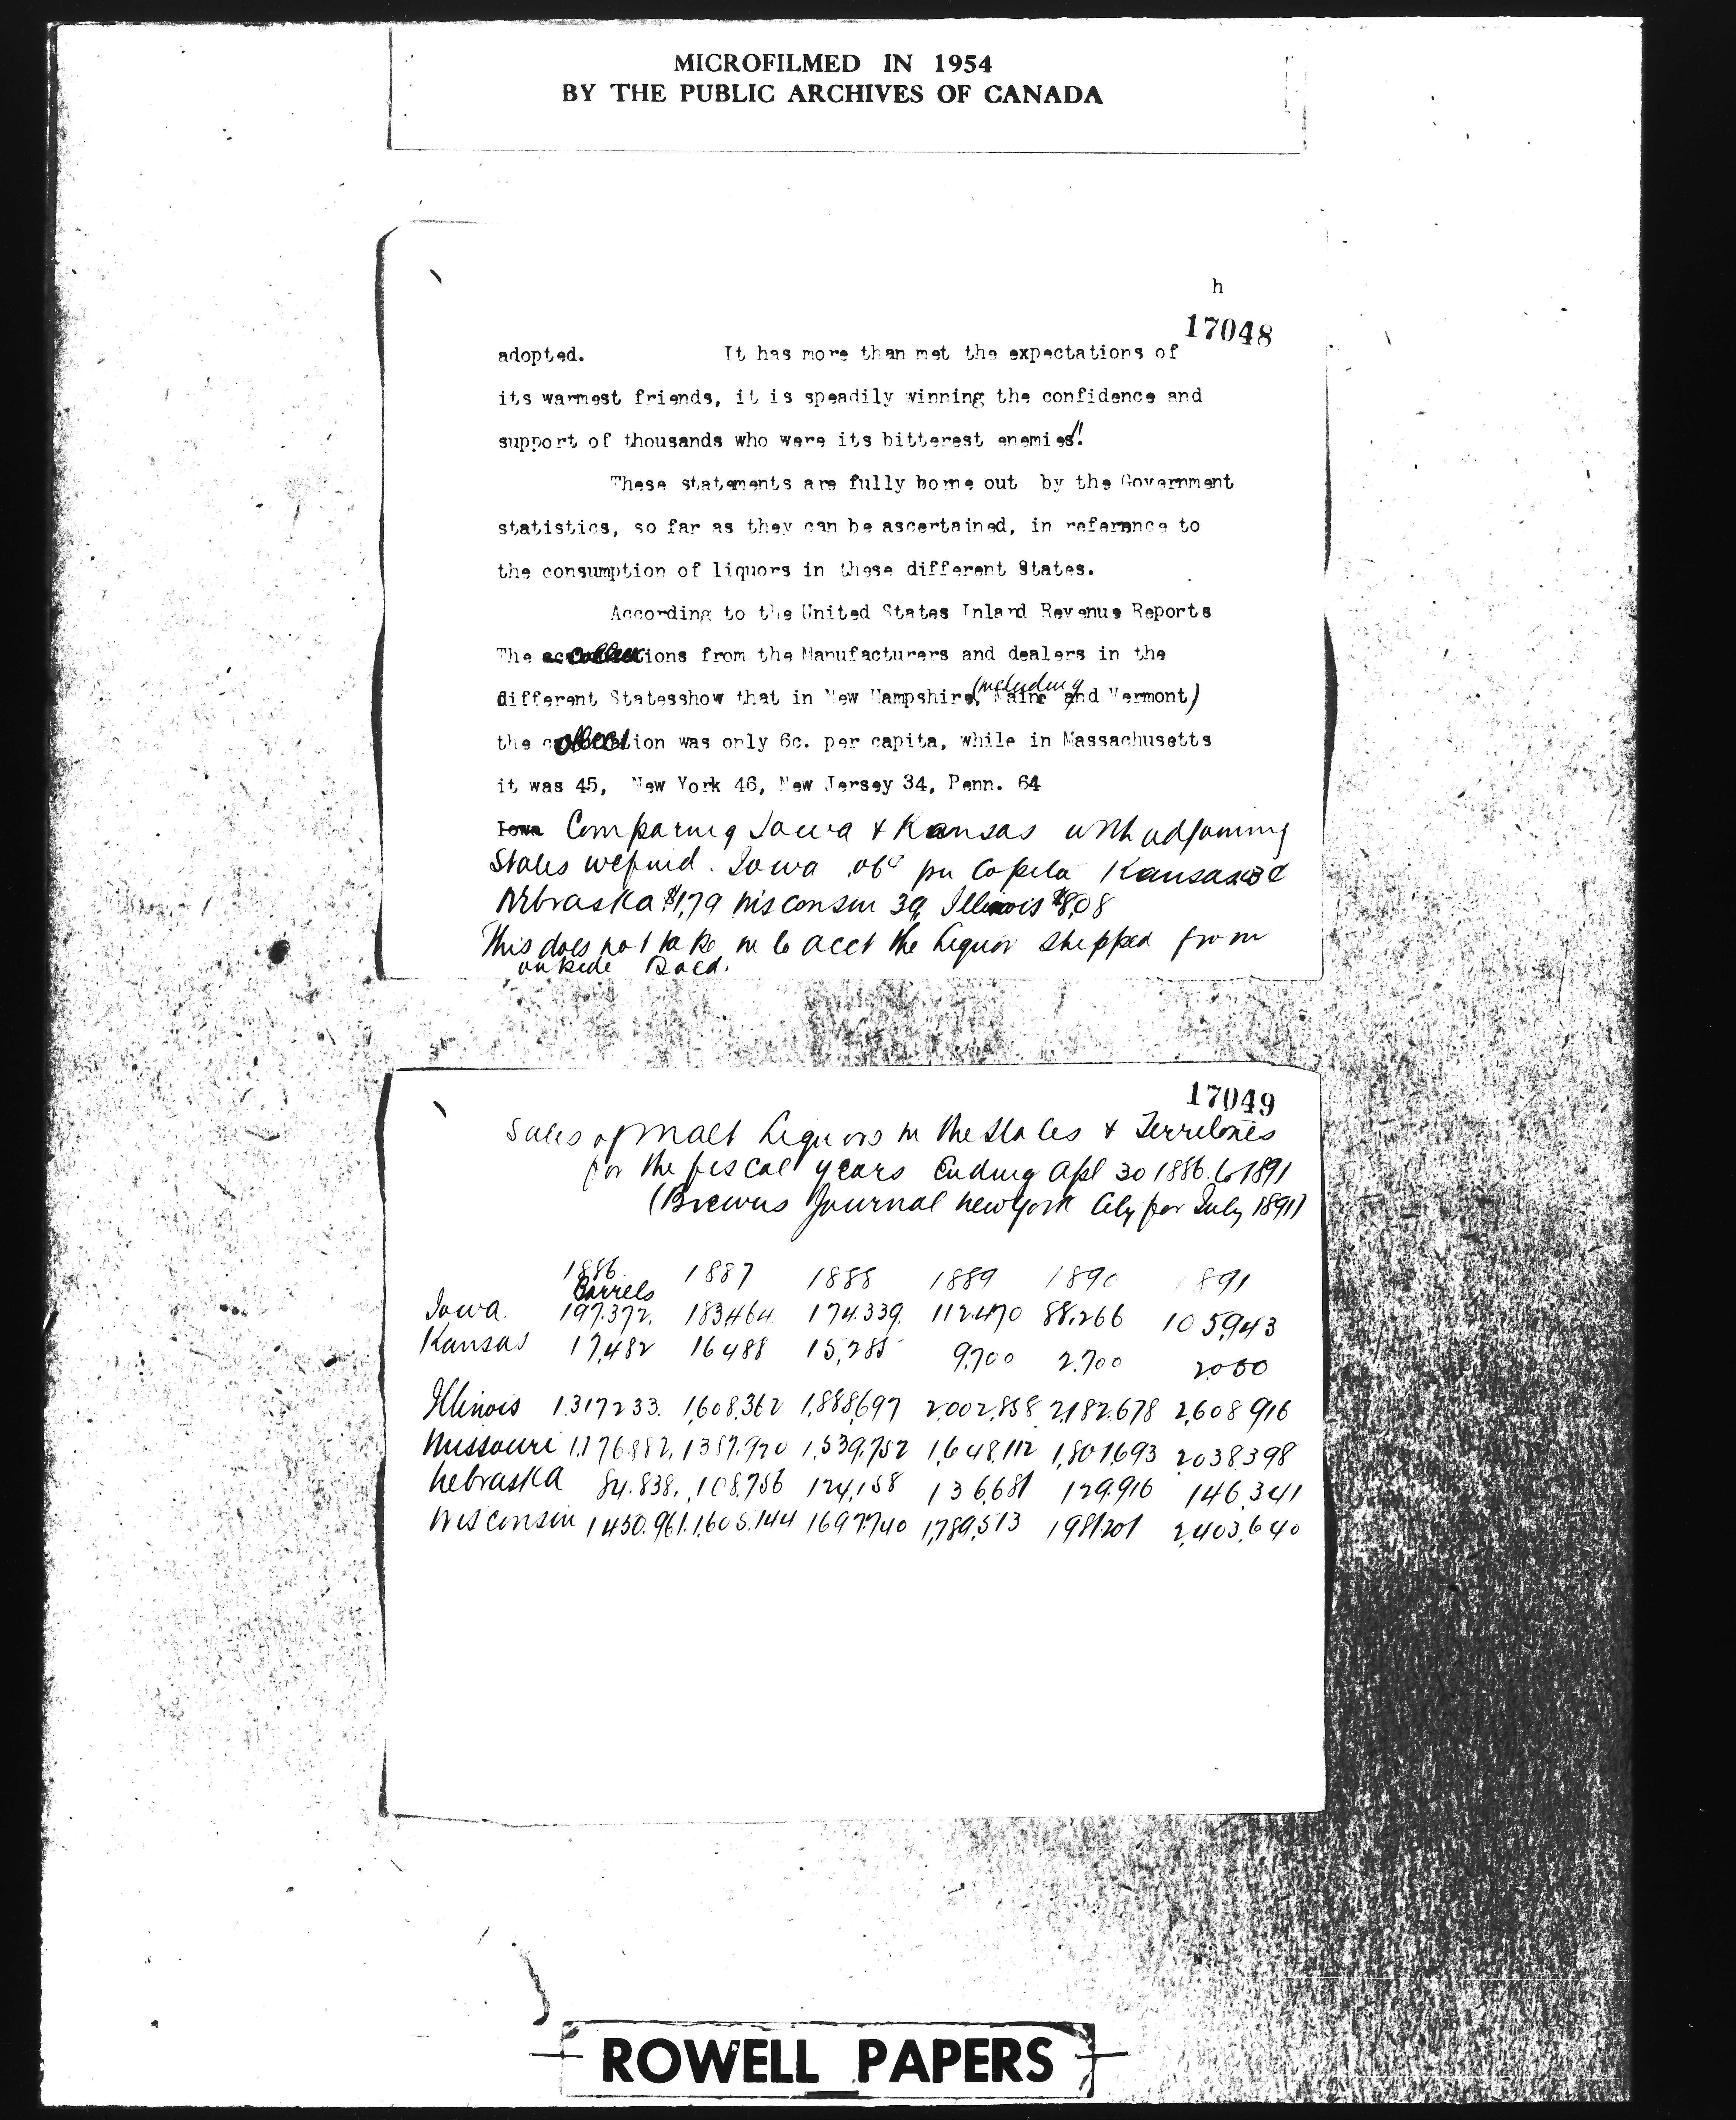 MICROFILMED IN 1954
BY THE PUBLIC ARCHIVES OF CANADA
h
17048
adopted. It has more than met the expectations of
its warmest friends, it is speadily winning the confidence and
support of thousands who were its bitterest enemies!
These statements are fully borne out by the Government
statistics, so far as they can be ascertained, in reference to
the consumption of liquors in these different States.
According to the United States Inland Revenue Reports
The collections from the Manufacturers and dealers in the
different Statesshow that in New Hampshire, (including Maine and Vermont)
the collection was only 6c. per capita, while in Massachusetts
it was 45, New York 46, New Jersey 34, Penn. 64
Iowa Comparing Iowa & Kansas with adjoining
States we find. Iowa .06c per Capita Kansas
Nebraska $1,79 Wisconsin 39 Illinois $8,08
This does not take in to acct the liquor shipped from
outside
17049
Sales of Malt Liquors in the States & Territories
for the fiscal years Ending Apl 30 1886. to 1891
(Brewers Journal New York City for July 1891)
1886. 1887 1888 1889 1890 1891
Barrels
Iowa. 197.372. 183,464 174.339. 112.470 88,266 105,943
Kansas 17,482 16488 15,285 9,700 2.700 2,000
Illinois 1.317233. 1,608,362 1,888,697 2,002,858 2,182.678 2,608916
Missouri 1.176.882, 1387.920 1,539,752 1,648,112 1,801,693 2,038,398
Nebraska 84.838. 108,756 124,158 136,681 129.916 146,341
Wisconsin 1450.961. 1,605.144 1697.740 1,789,513 1981201 2,403,640
ROWELL PAPERS